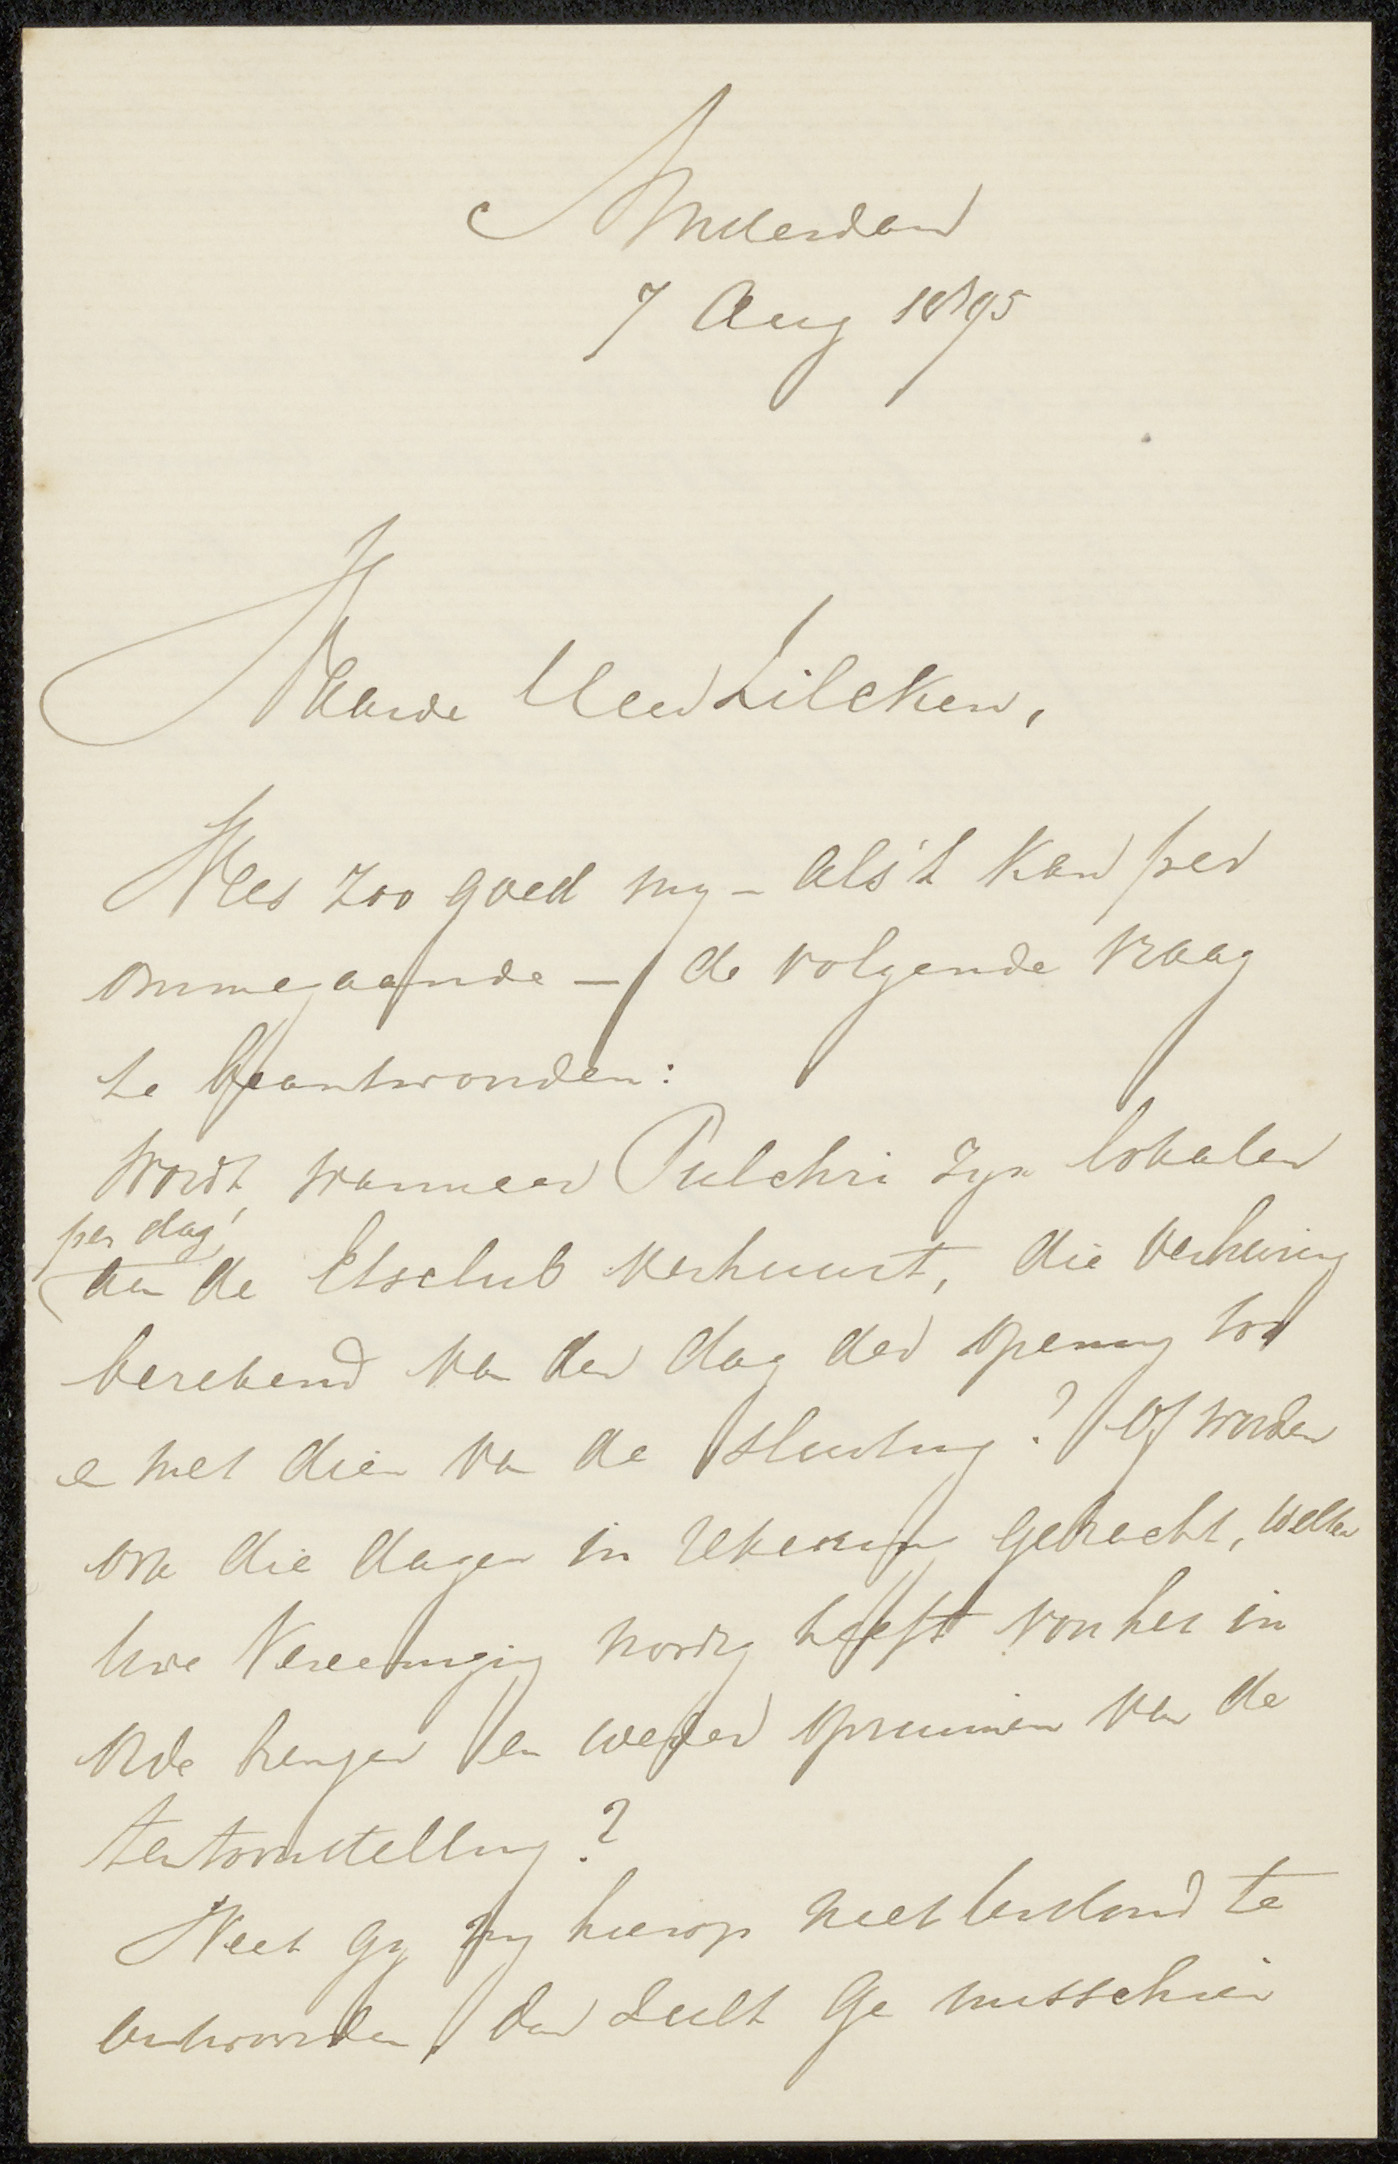 Amsterdam
7 Aug 1895
Waarde Heer Zilcken,
Wees zoo goed my – als 't kan per
ommegaande – de volgende vraag
te beantwoorden:
Wordt, wanneer Pulchri zyn lokalen
per dag
aan de Etsclub verhuurt, die verhuring
berekend van den dag der opening tot
en met dien van de sluiting? Of worden
ook die dagen in rekening gebracht, welke
uwe Vereeniging noodig heeft voor het in
orde brengen en weder opruimen van de
tentoonstelling?
Weet gy my hierop niet beslond te
antwoorden, dan zult ge misschien